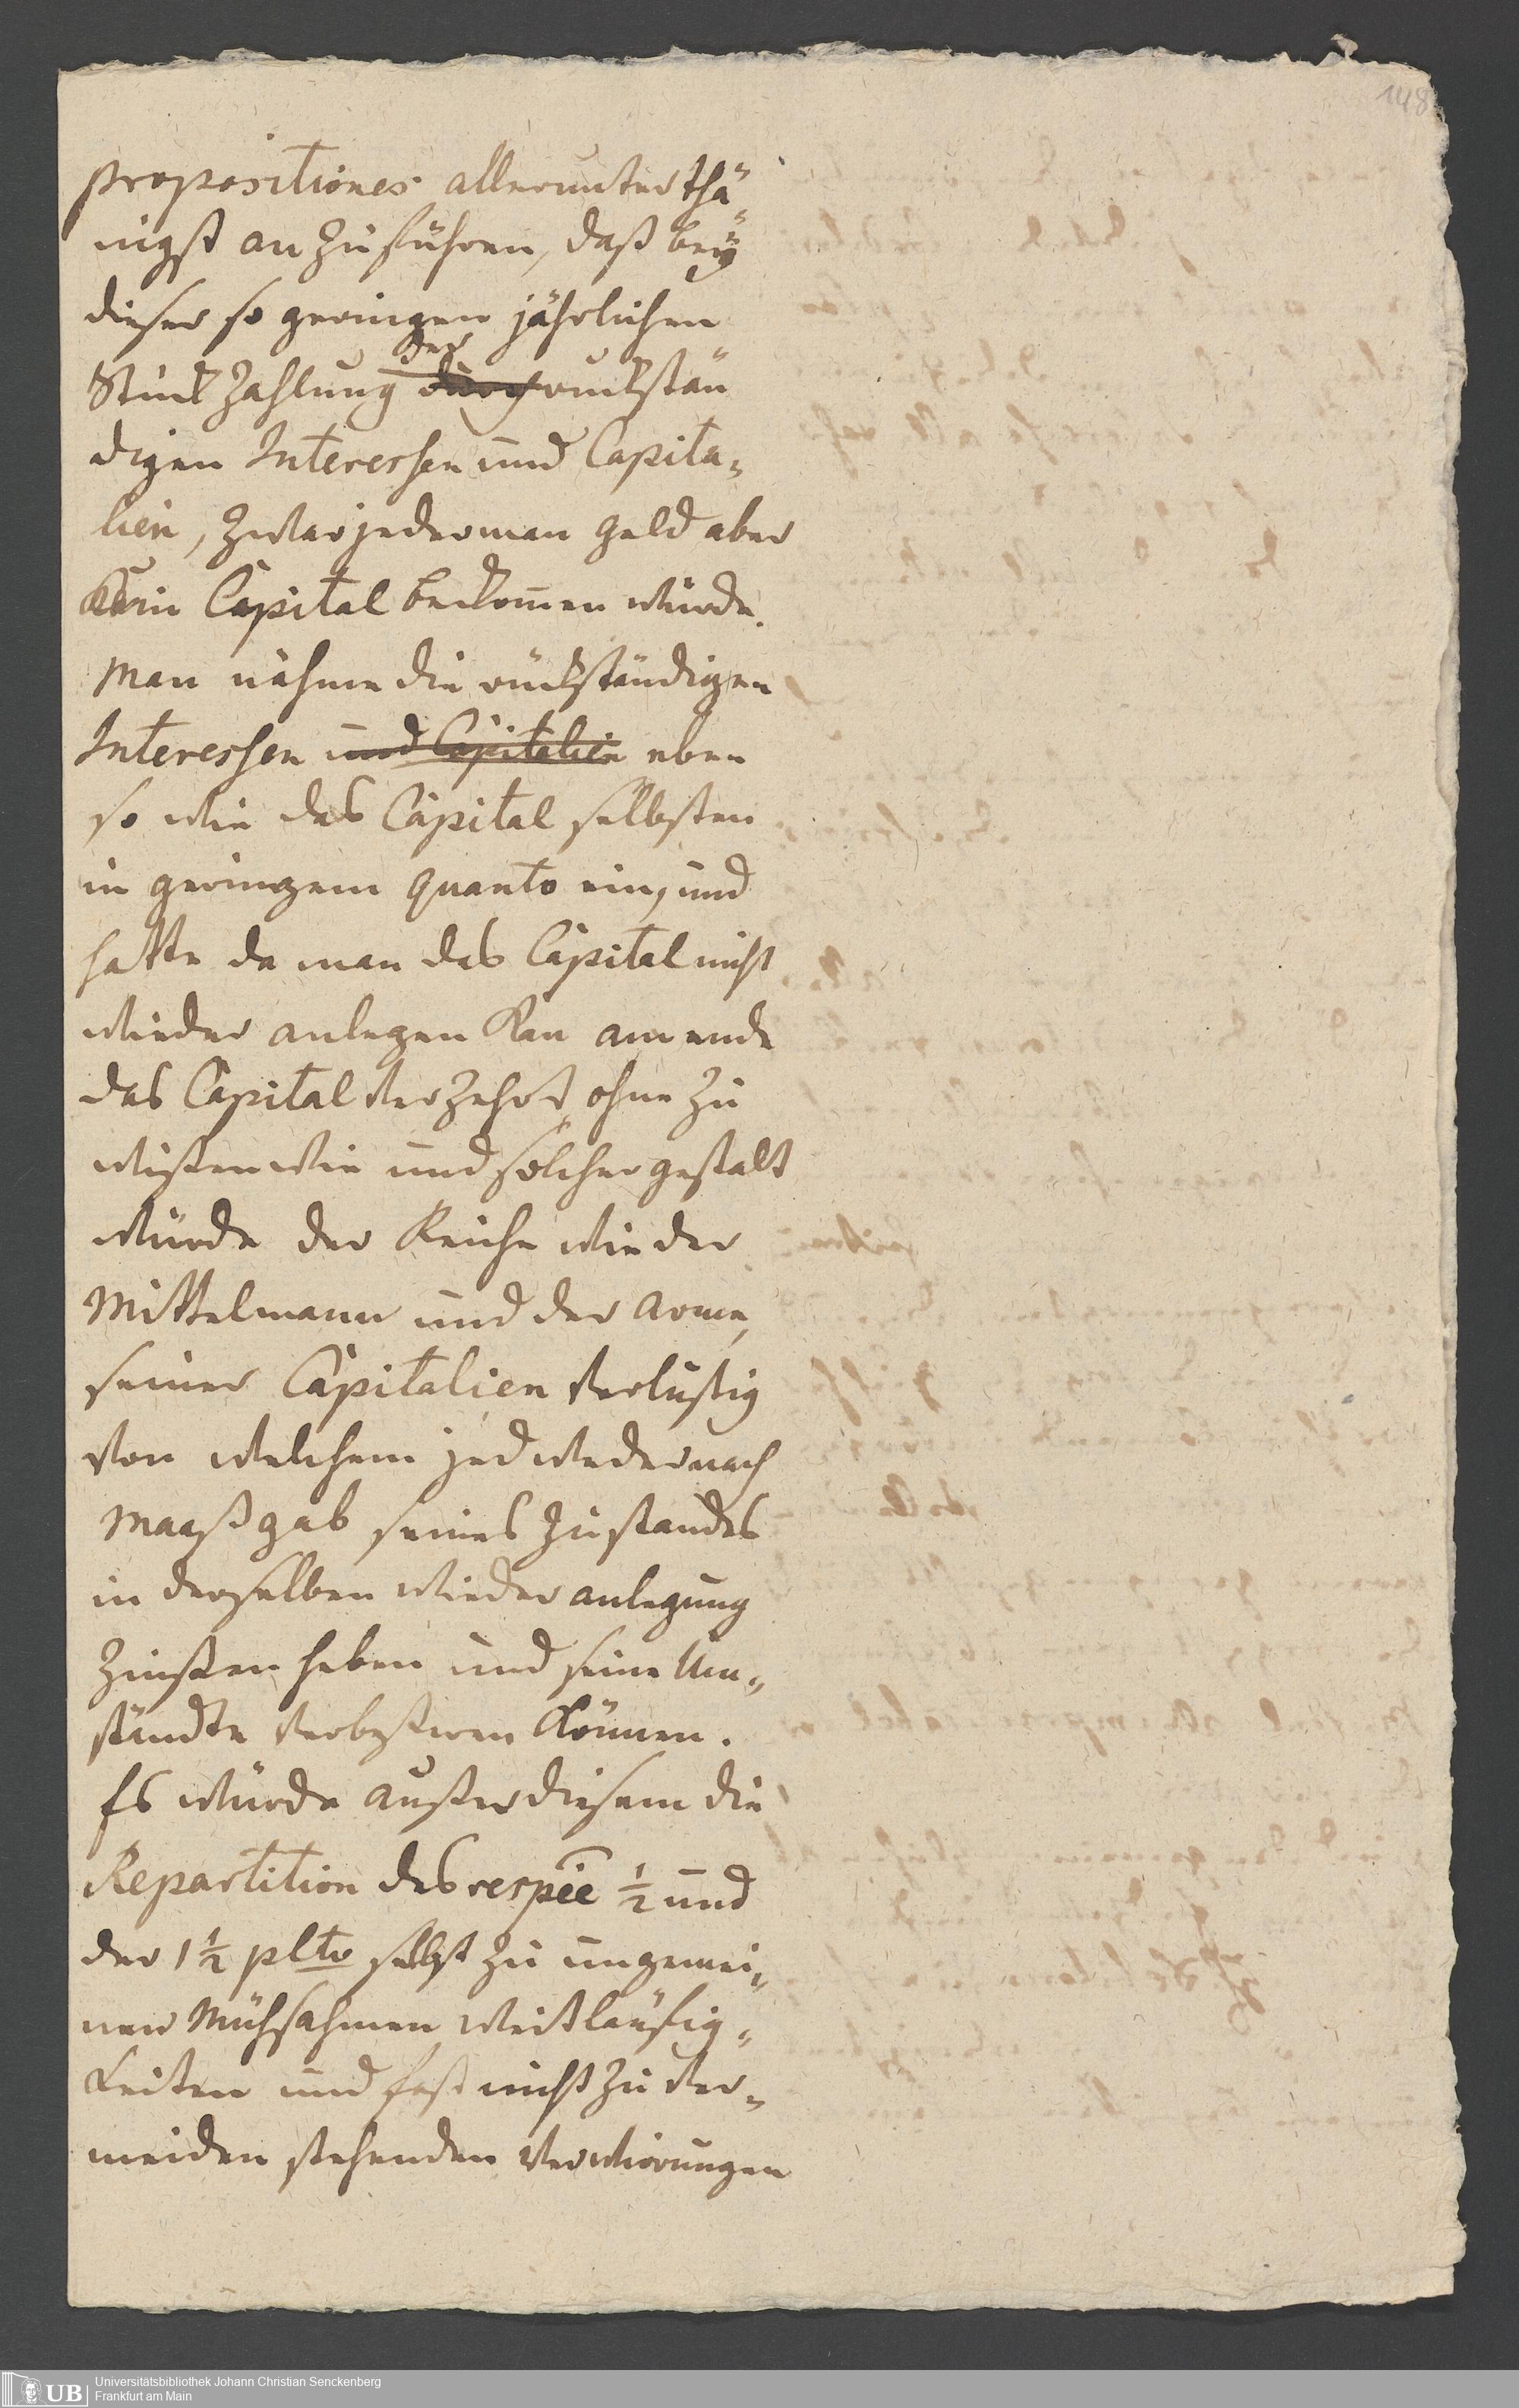 148
propositiones allerunterthä„
nigst an zu führen, daß beÿ
dieser so geringen jährlichen
der
Stück Zahlung durch ruckstän
digen Interessen und Capita„
lien, zwar jederman Geld aber
Kein Capital bekomen würde.
Man nähme die rückständigen
Interessen und Capitalien eben
so wie das Capital selbsten
in geringem quanto ein, und
hätte da man das Capital nicht
wieder anlegen Kan am ende
das Capital verzehrt, ohne zu
wißen wie und solcher gestalt
würde der Reiche wie der
Mittelmann und der Arme,
seiner Capitalien verlustig
von welchem jedweder nach
Maaßgab seines Zustandes
in derselben wieder anlegung
Zinßen heben und seine Um„
ständte verbeßeren Können.
Es würde außer diesem die
Repartition des respée ½ und
der 1½ pCto selbst zu ungemei„
nen Mühsahmen Weitläufig„
keiten und fast nicht zu ver„
meiden stehenden Verwirrungen
UB Universitätsbibliothek Johann Christian Senckenberg
Frankfurt am Main